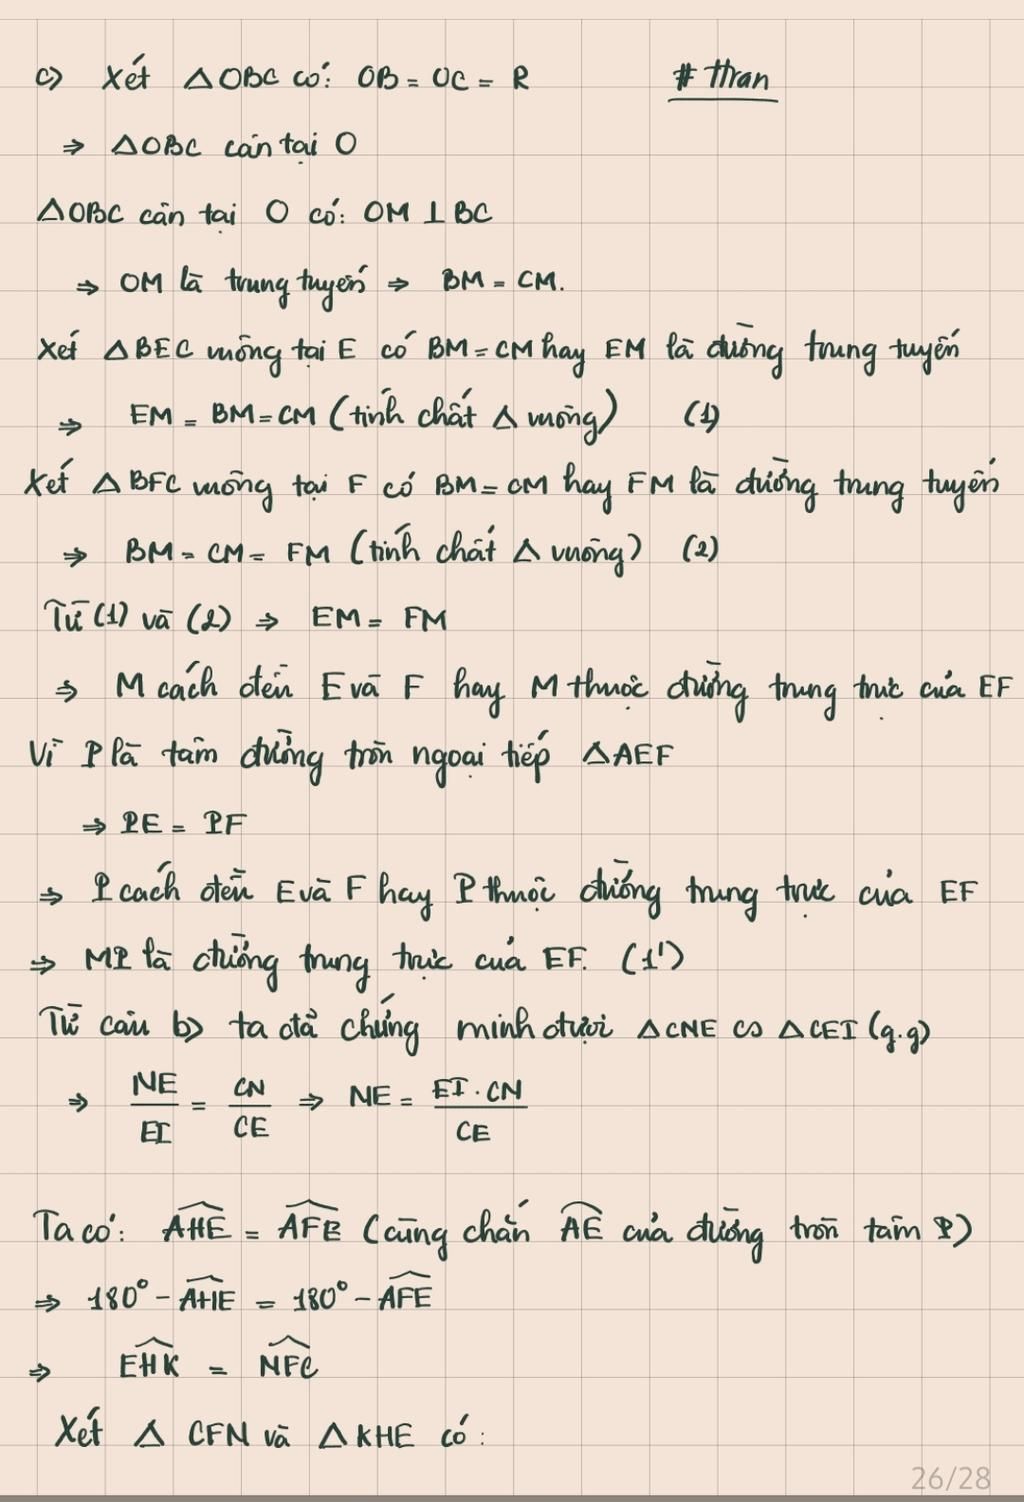 c) Xét △OBC có: OB = OC = R
# Hran
⇒ △OBC cân tại O
△OBC cân tại O có: OM ⊥ BC
⇒ OM là trung tuyến ⇒ BM = CM.
Xét △BEC vuông tại E có BM = CM hay EM là đường trung tuyến
⇒ EM = BM = CM (tính chất △ vuông) (1)
Xét △BFC vuông tại F có BM = CM hay FM là đường trung tuyến
⇒ BM = CM = FM (tính chất △ vuông) (2)
Từ (1) và (2) ⇒ EM = FM
⇒ M cách đều E và F hay M thuộc đường trung trực của EF
Vì P là tâm đường tròn ngoại tiếp △AEF
⇒ PE = PF
⇒ P cách đều E và F hay P thuộc đường trung trực của EF
⇒ MP là đường trung trực của EF. (1')
Từ câu b) ta đã chứng minh được △CNE ∽ △CEI (g.g)
⇒ NE/EI = CN/CE ⇒ NE = EI . CN/CE
Ta có: ÂHE = ÂFE (cùng chắn AE của đường tròn tâm P)
⇒ 180° - ÂHE = 180° - ÂFE
⇒ EHK = NFC
Xét △ CFN và △ KHE có:
26/28